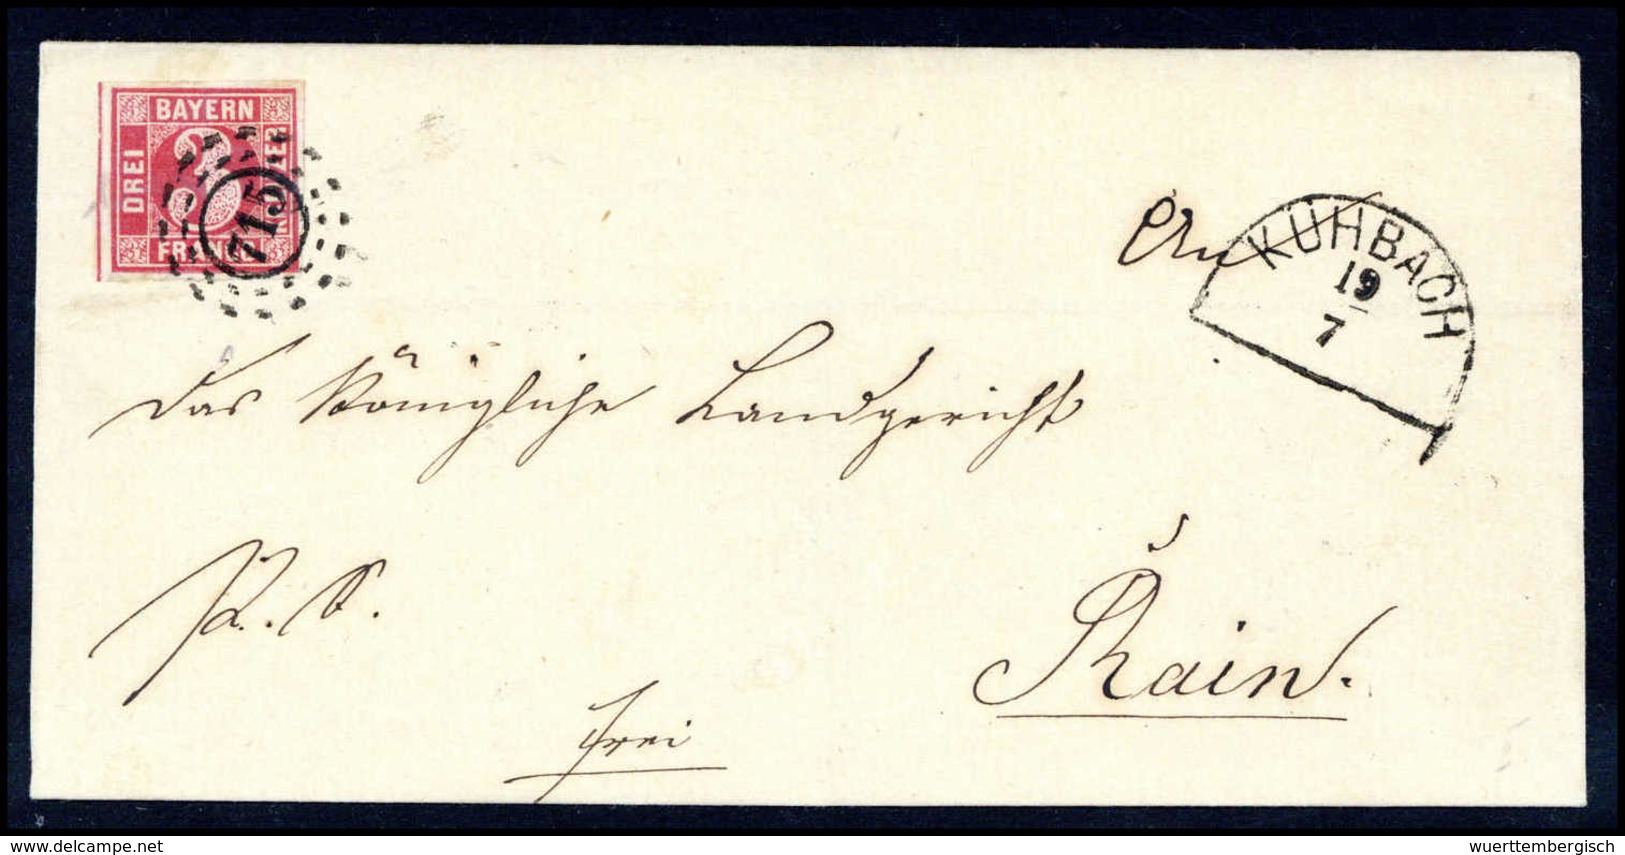 BAYERN
DREI
FRANCO
715
An
KÜHBACH
19
7
Das Königliche Landgericht
Rain.
frei
delcampe.net
wuerttembergisch